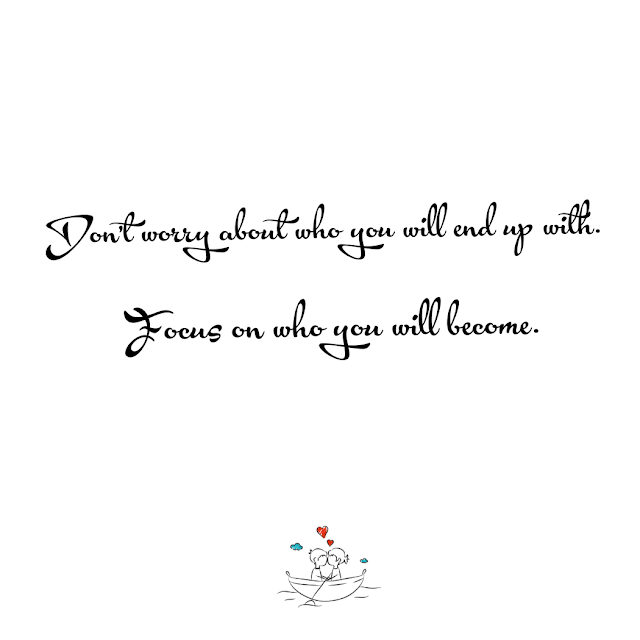 Don't worry about who you will end up with.
Focus on who you will become.